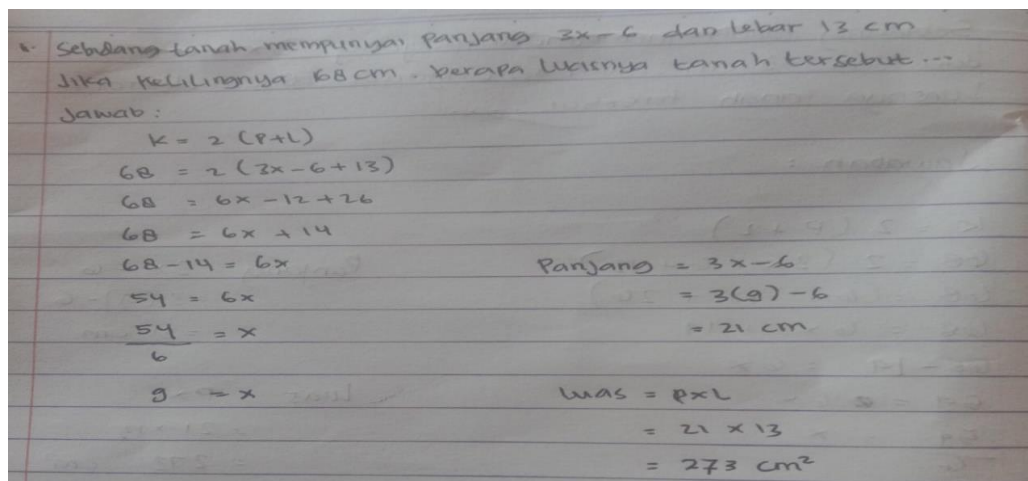 1. Sebidang tanah mempunyai panjang 3x-6 dan lebar 13 cm
Jika kelilingnya 68 cm. berapa luasnya tanah tersebut ...
Jawab:
K = 2 (P+L)
68 = 2 (3x-6+13)
68 = 6x-12+26
68 = 6x+14
68-14 = 6x
54 = 6x
54
6
= x
9 = x
Panjang = 3x-6
= 3(9)-6
= 21 cm
Luas = PxL
= 21 x 13
= 273 cm²